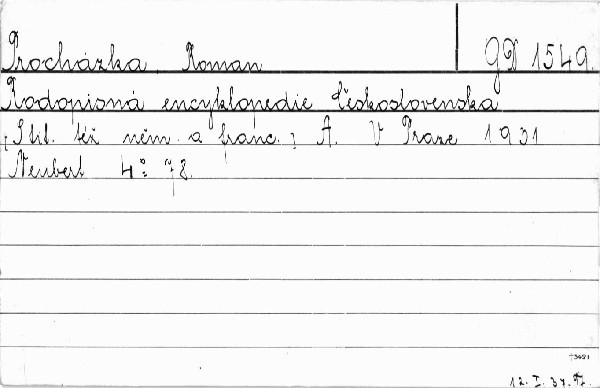 Procházka Roman GD 1549.
Rodopisná encyklopedie Československa
[Stil. též něm. a franc.] A. V Praze 1931
Neubert 4º 78.
12.I.37.